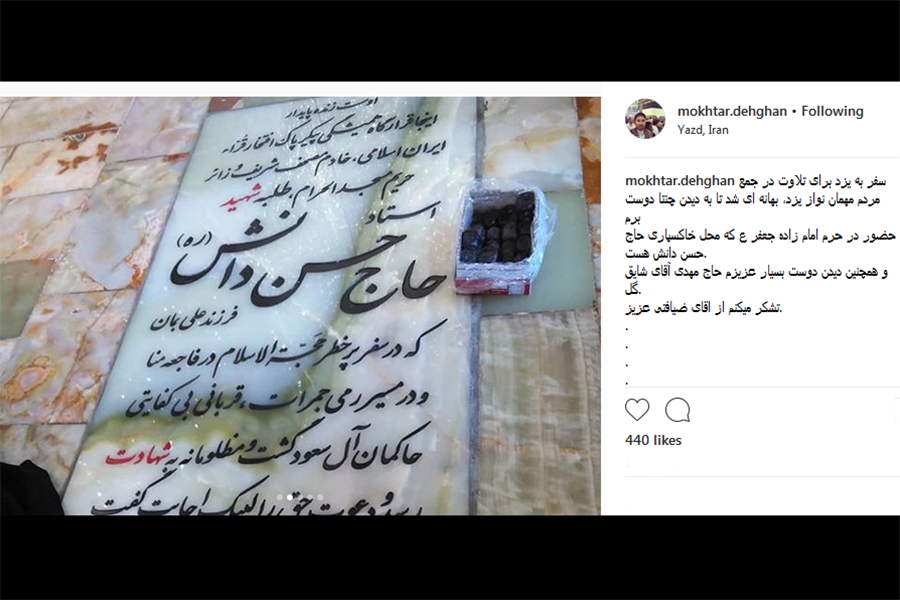 اوست زنده پایدار
اینجا قرارگاه همیشگی پیکر پاک افتخار قراء
ایران اسلامی، خادم مصحف شریف و زائر
حریم مسجد الحرام طلبه شهید
استاد
حاج حسن دانش (ره)
فرزند علی بمان
که در سفر پر خطر حجة الاسلام در فاجعه منا
و در مسیر رمی جمرات، قربانی بی کفایتی
حاکمان آل سعود گشت و مظلومانه به شهادت
رسید و دعوت حق را لبیک اجابت گفت
mokhtar.dehghan • Following
Yazd, Iran
mokhtar.dehghan سفر به یزد برای تلاوت در جمع
مردم مهمان نواز یزد، بهانه ای شد تا به دیدن چنتا دوست
برم
حضور در حرم امام زاده جعفر ع که محل خاکسپاری حاج
حسن دانش هست.
و همچنین دیدن دوست بسیار عزیزم حاج مهدی آقای شایق
گل.
تشکر میکنم از اقای ضیافتی عزیز.
.
.
.
.
440 likes